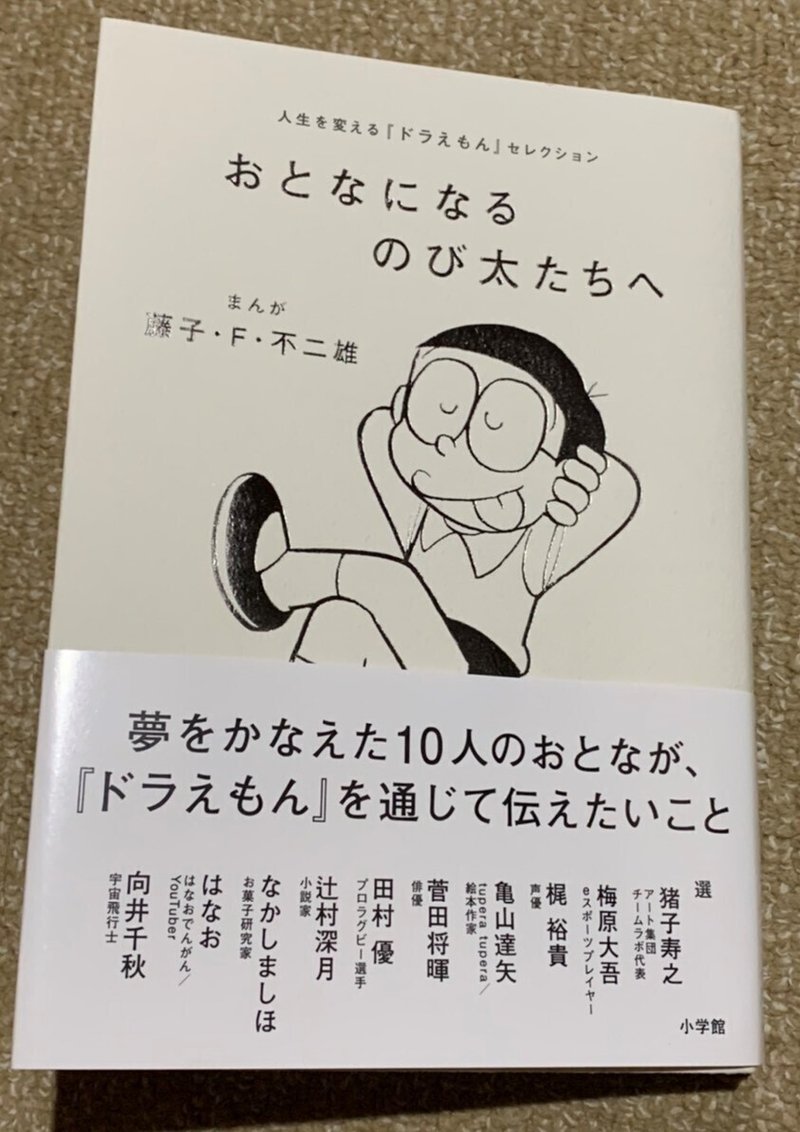 人生を変える『ドラえもん』セレクション
おとなになる
のび太たちへ
まんが
藤子・F・不二雄
夢をかなえた10人のおとなが、
『ドラえもん』を通じて伝えたいこと
選
猪子寿之
アート集団
チームラボ代表
梅原大吾
eスポーツプレイヤー
梶 裕貴
声優
亀山達矢
tupera tupera/
絵本作家
菅田将暉
俳優
田村 優
プロラグビー選手
辻村深月
小説家
なかしましほ
お菓子研究家
はなお
はなおでんがん/
YouTuber
向井千秋
宇宙飛行士
小学館